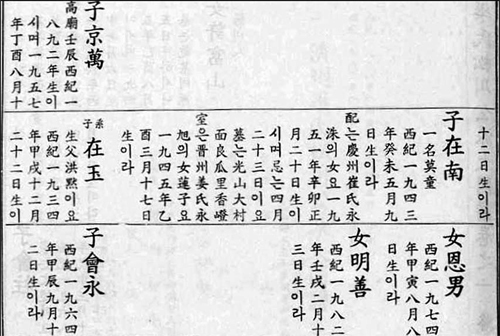 子京萬
高廟壬辰西紀一
八九二年生이
시며一九五七
年丁酉八月十
十二日生이라
子在南
一名莫童
西紀一九四三
年癸未五月九
日生이라
配는慶州崔氏永
洙의女요一九
五一年辛卯正
月二十日生이
시며忌는四月
二十三日이요
墓는光山大村
面良瓜里香嶝
室은晋州姜氏永
旭의女蓮子요
一九四五年乙
酉三月十七日
生이라
系子在玉
生父洪黙이요
西紀一九三四
年甲戌十二月
二十二日生이
女恩男
西紀一九七四
年甲寅八月八
日生이라
女明善
西紀一九八二
年壬戌二月十
三日生이라
子會永
西紀一九六四
年甲辰九月十
二日生이라